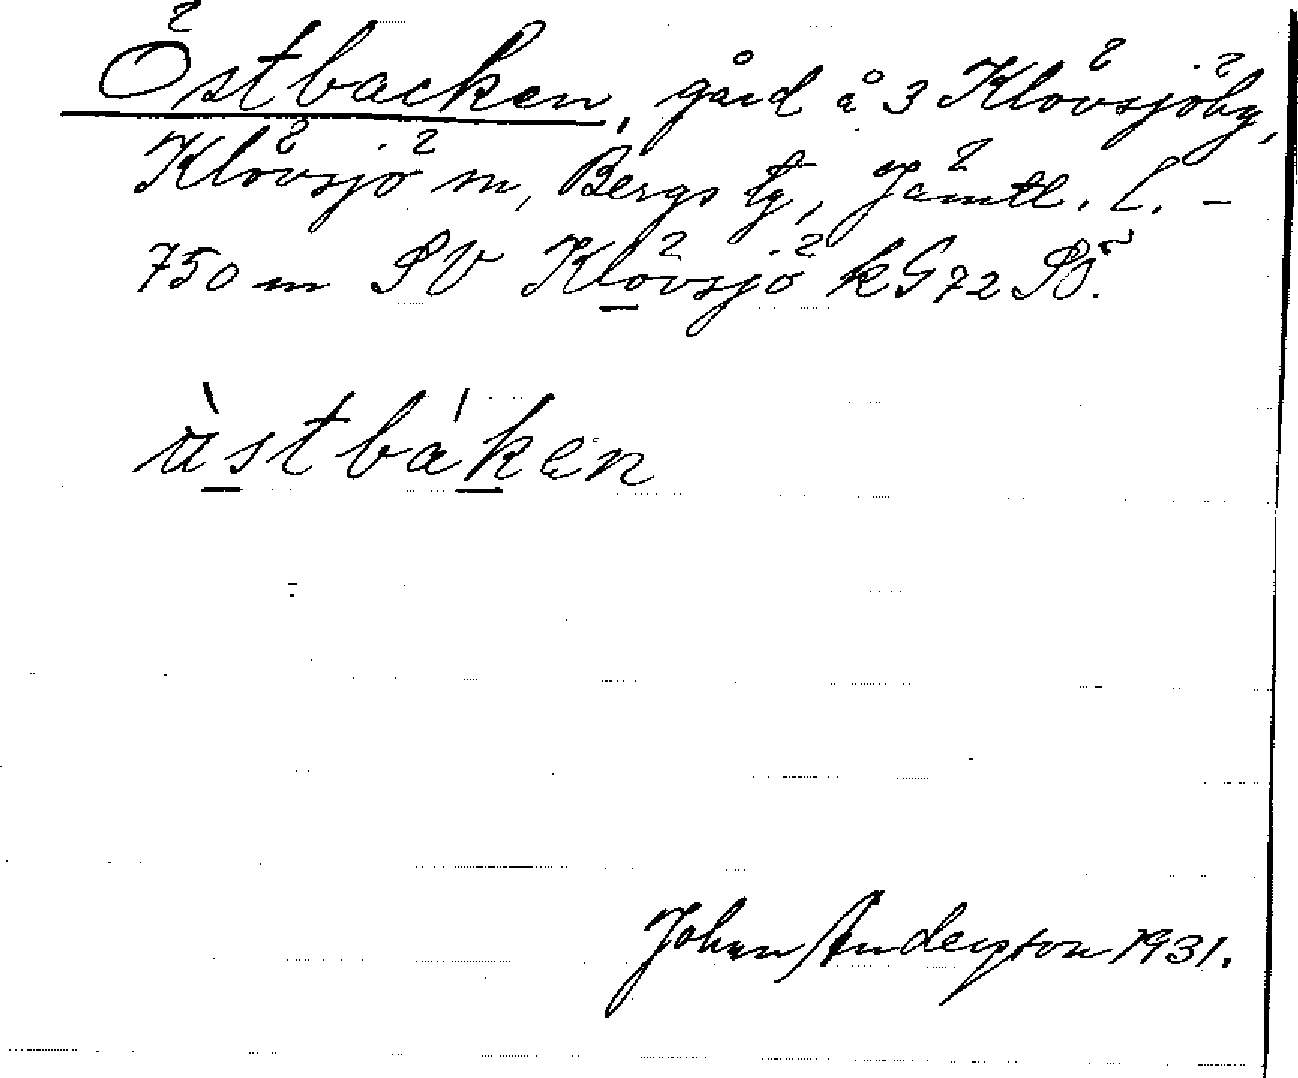 Östbacken, gård å 3 Klövsjöby,
Klövsjö sn, Bergs tg, Jämtl. l. –
750 m SV Klövsjö k G72 SÖ.
ùstbáken
Johan Anderson 1931.